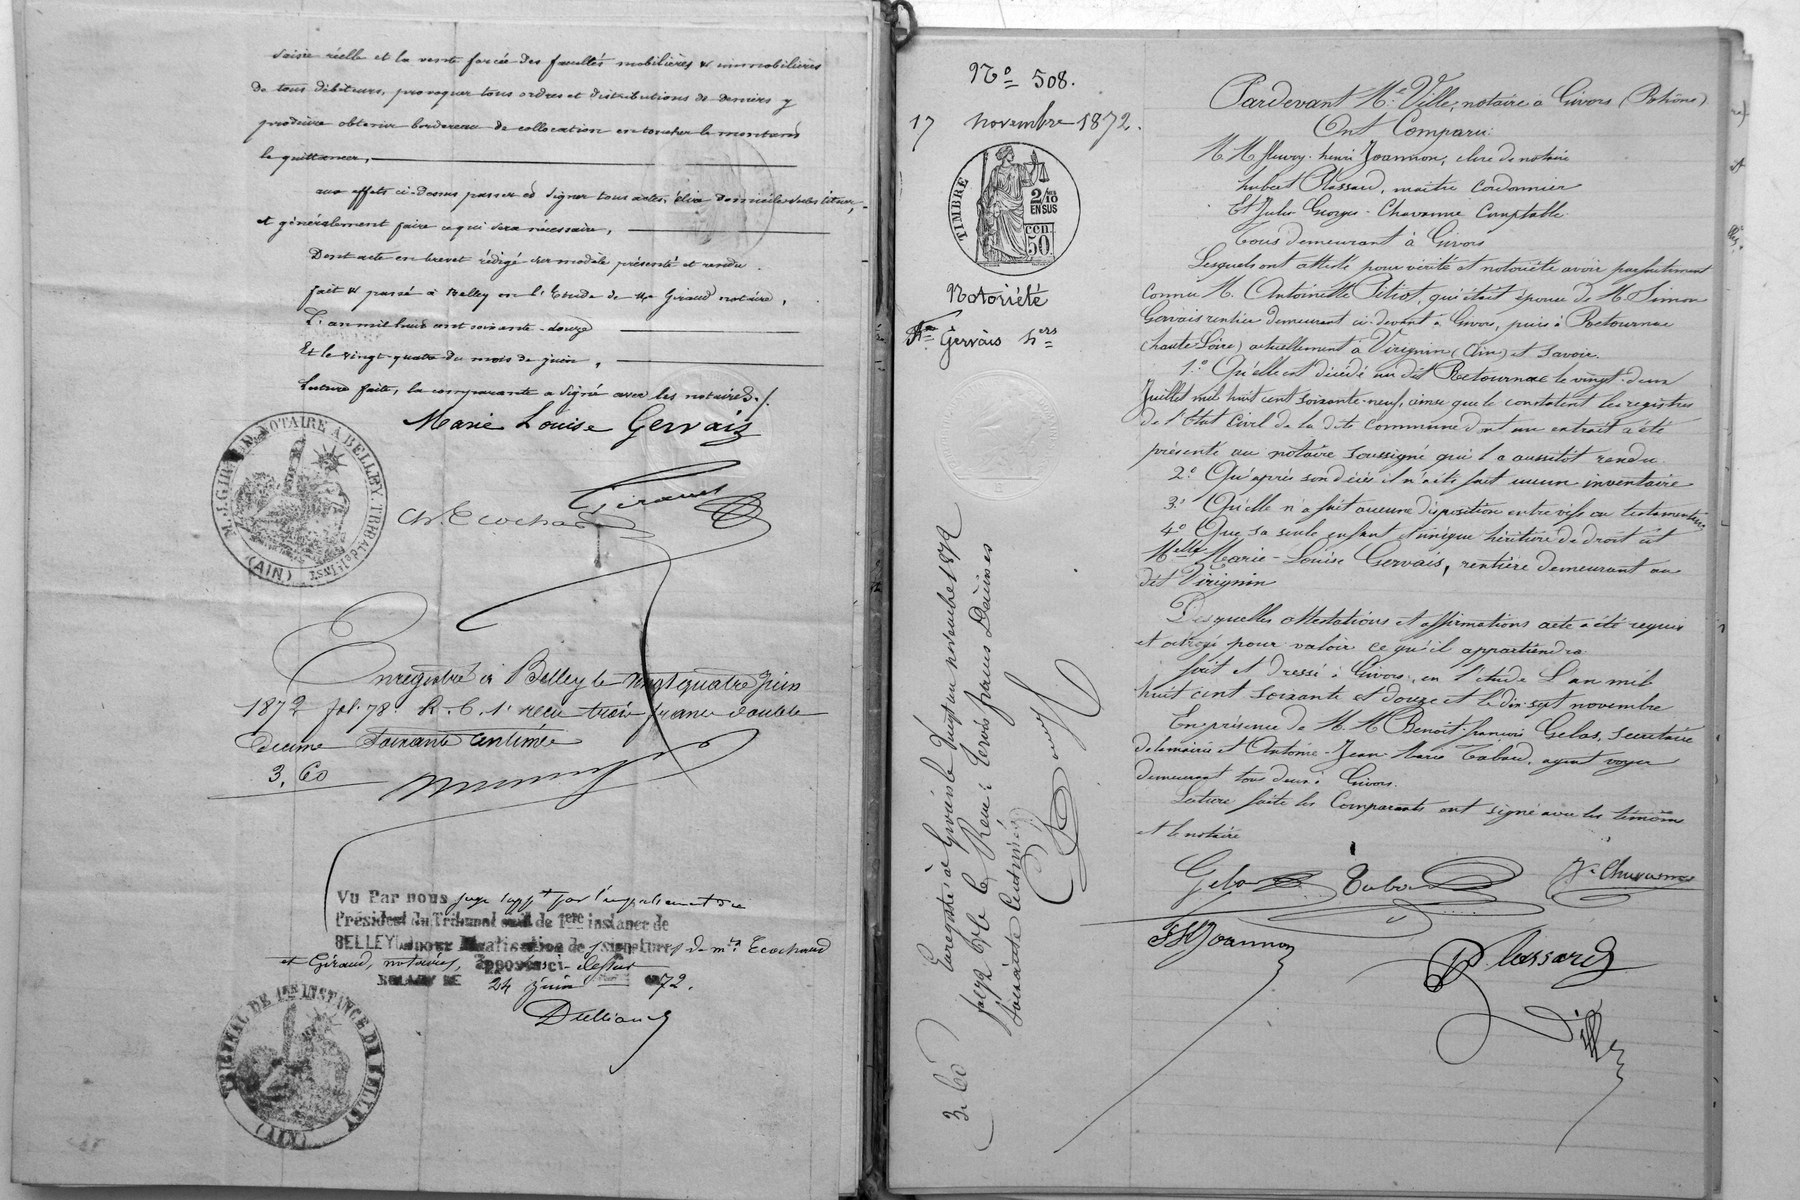 saisie réelle et la vente forcée des facultés mobilières & immobilières
de tous débiteurs, provoquer tous ordres et distributions de deniers y
produire obtenir bordereau de collocation en toucher le montant
le quittancer,
aux effets ci-dessus passer et signer tous actes, élire domicile substituer,
et généralement faire ce qui sera nécessaire,
Dont acte en brevet rédigé sur modèle présenté et rendu.
fait & passé à Belley en l'Etude de Me Giraud notaire,
L'an mil huit cent soixante-douze
Et le vingt-quatre du mois de juin,
Lecture faite, la comparante a signé avec les notaires./.
Marie Louise Gervais
Giraud
Ch. Ecochard
M. J. GIRAUD, NOTAIRE A BELLEY. TRBAL DE 1re INST.
(AIN)
Enregistré à Belley le vingt quatre Juin
1872 fol. 78. R. C. 1. reçu trois francs double
décime soixante centimes
3,60
Vu Par nous juge supt par l'empêchement du
Président du Tribunal civil de 1ere instance de
BELLEY pour légalisation des signatures de Mes Ecochard
et Giraud, notaires, apposées ci-dessus
BELLEY LE 24 juin 1872.
TRIBUNAL DE 1RE INSTANCE DE BELLEY
(AIN)
No 508.
17 novembre 1872.
TIMBRE
2/10
EN SUS
50 CEN
Notoriété
Gervais hers
Enregistré à Givors le vingt un novembre 1872
Reçu: trois francs Décimes
soixante Centimes
3.60
Pardevant Me Ville, notaire à Givors (Rhône)
Ont Comparu:
M.M fleury-henri Joannon, clerc de notaire
hubert Plassard, maître cordonnier
Et Jules Georges Chavanne Comptable
tous demeurant à Givors
Lesquels ont attesté pour vérité et notoriété avoir parfaitement
connu M. Antoinette Pitiot, qui était épouse de M. Simon
Gervais rentier demeurant ci-devant à Givors, puis à Retournac
(haute Loire) actuellement à Virignin (Ain) et savoir.
1.o Qu'elle est décédée au dit Retournac le vingt-deux
Juillet mil huit cent soixante-neuf, ainsi que le constatent les registres
de l'Etat Civil de la dite Commune dont un extrait a été
présenté au notaire soussigné qui l'a aussitôt rendu
2.o Qu'après son décès il n'a été fait aucun inventaire
3.o Qu'elle n'a fait aucune disposition entre vifs ou testamentaire
4.o Que sa seule enfant et unique héritière de droit est
Melle Marie-Louise Gervais, rentière demeurant au
dit Virignin
Desquelles attestations et affirmations acte a été requis
et octroyé pour valoir ce qu'il appartiendra
fait et dressé à Givors, en l'étude L'an mil
huit cent soixante et douze et le dix-sept novembre
En présence de M.M Benoit-françois Gelas, secrétaire
de la mairie et Antoine-Jean-Marie Tabard, agent voyer
demeurant tous deux à Givors.
Lecture faite les Comparants ont signé avec les témoins
et le notaire
Gelas Tabard Js Chavanne
FHJoannon
Plassard
Ville